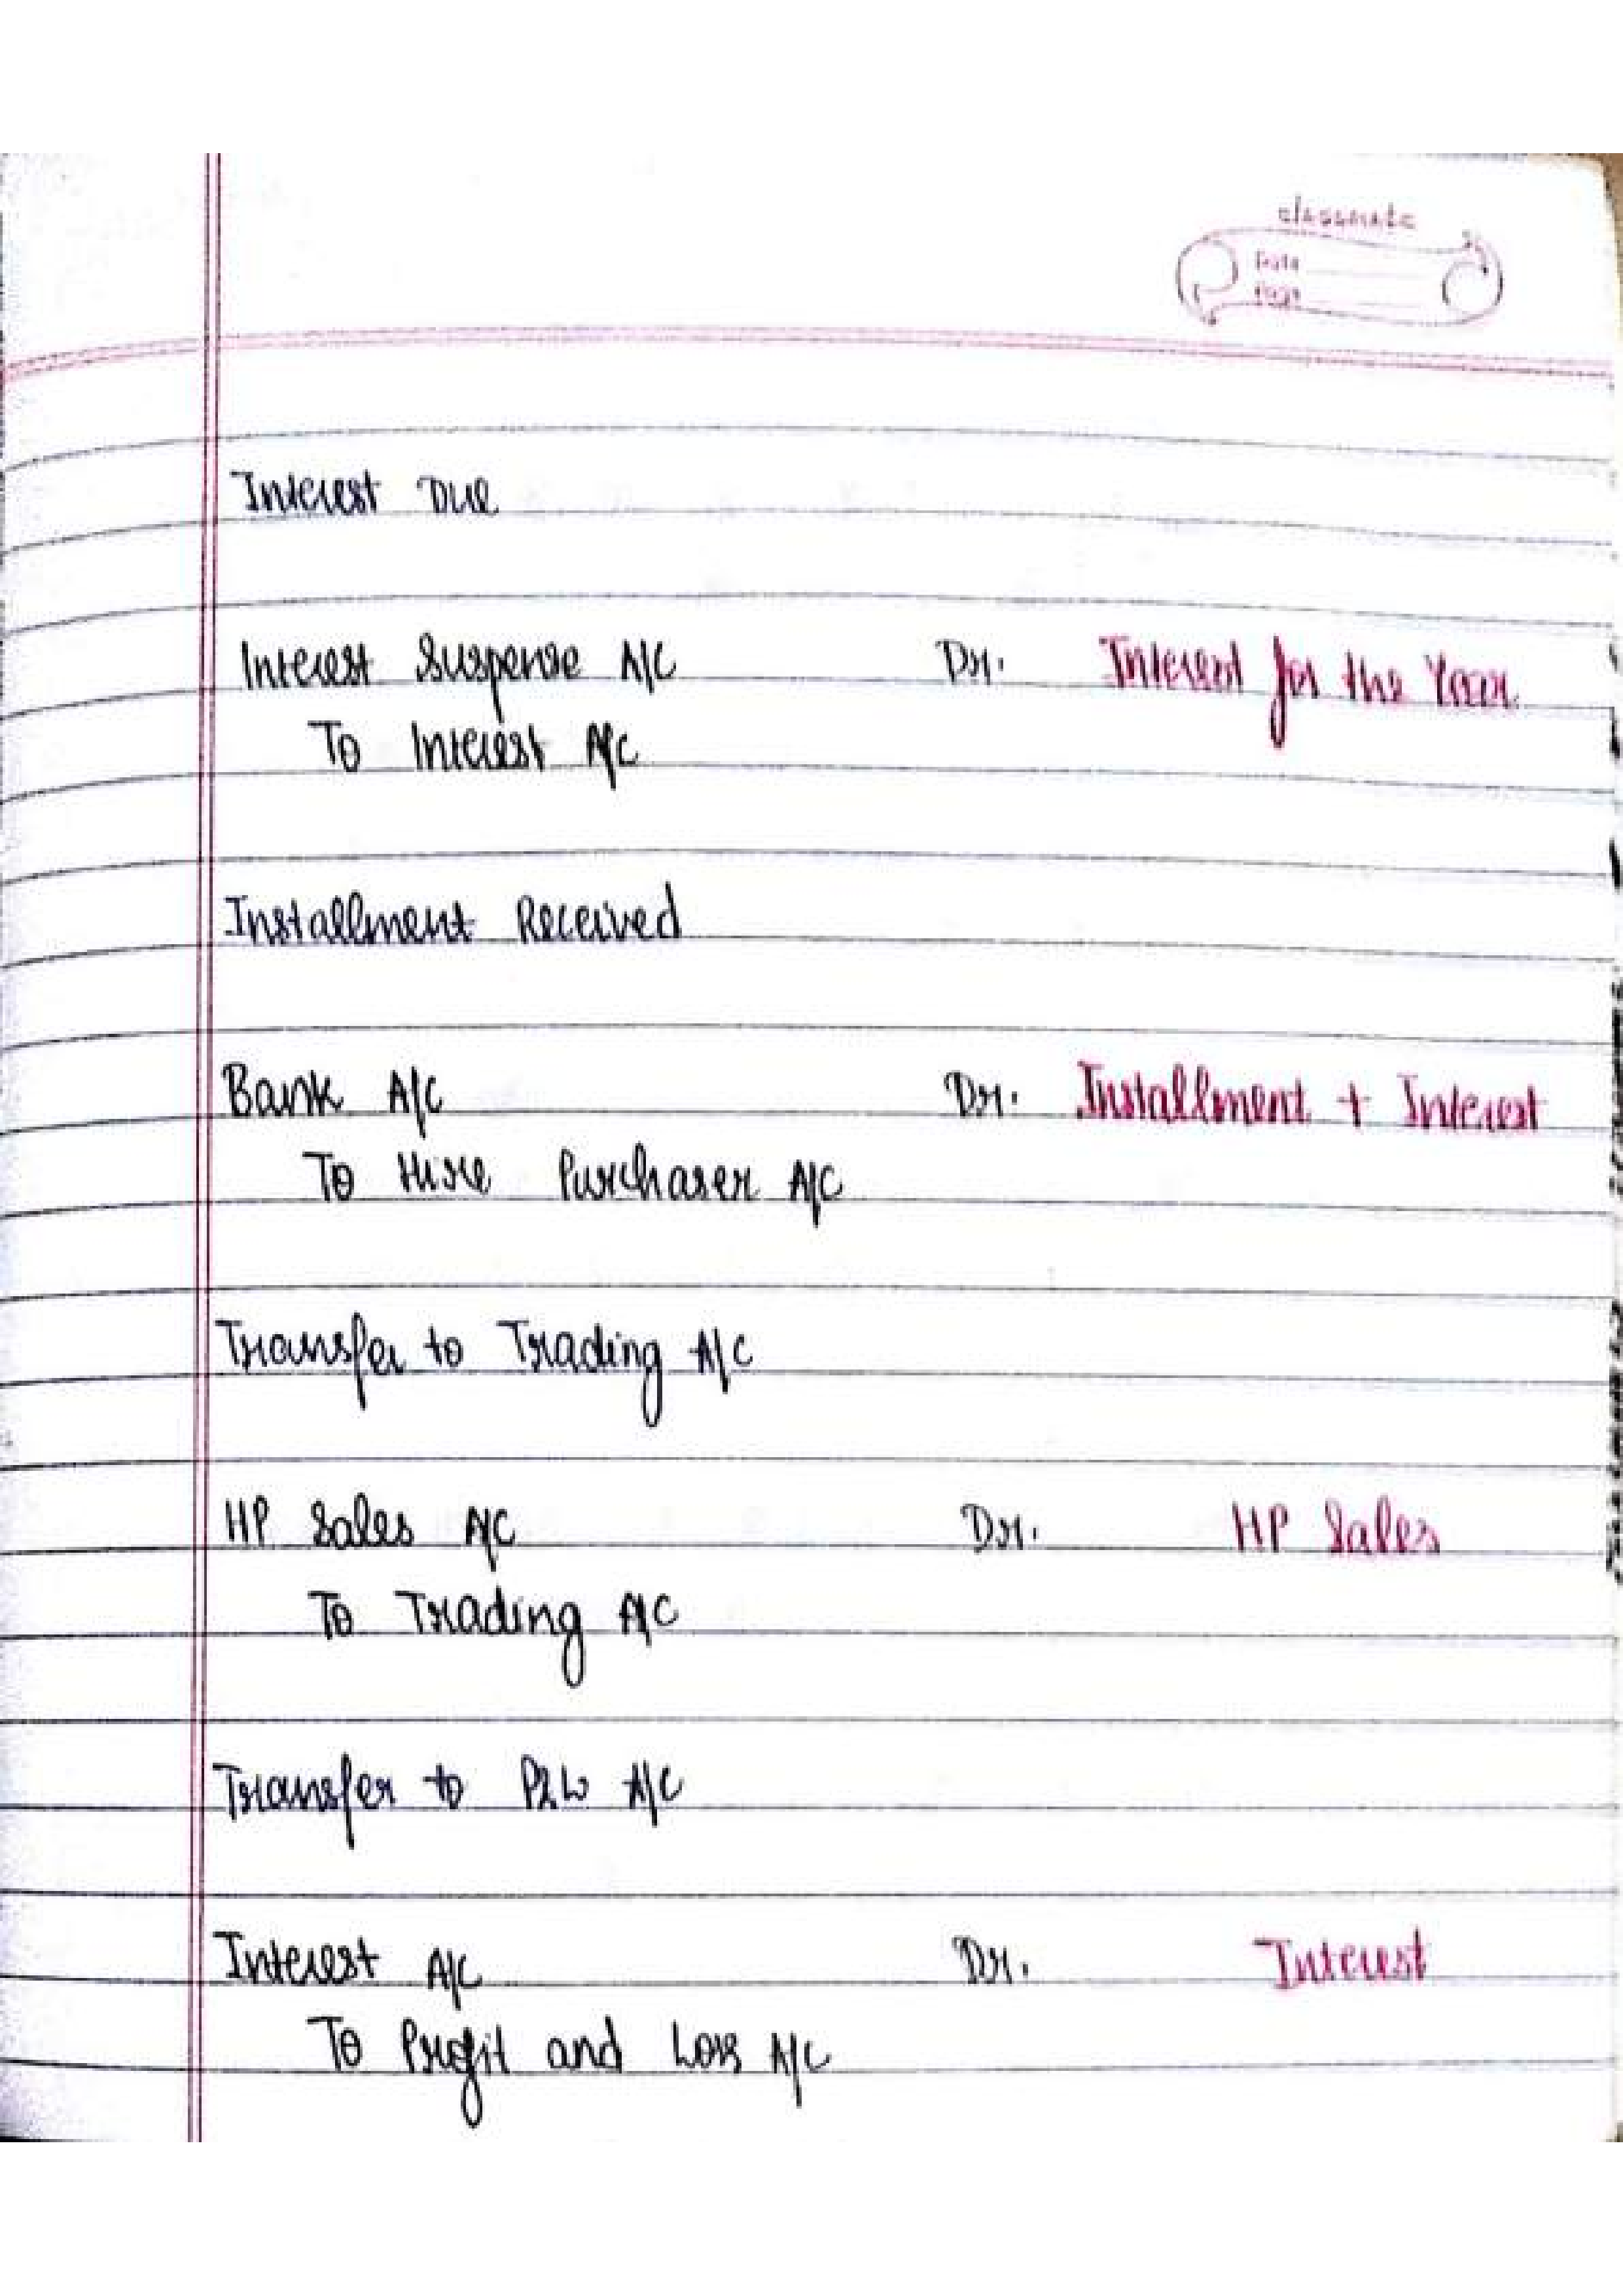 classmate
Date
Page
Interest Due
Interest Suspense A/C Dr. Interest for the Year
To Interest A/C
Installment Received
Bank A/C Dr. Installment + Interest
To Hire Purchaser A/C
Transfer to Trading A/C
HP Sales A/C Dr. HP Sales
To Trading A/C
Transfer to P&L A/C
Interest A/C Dr. Interest
To Profit and Loss A/C